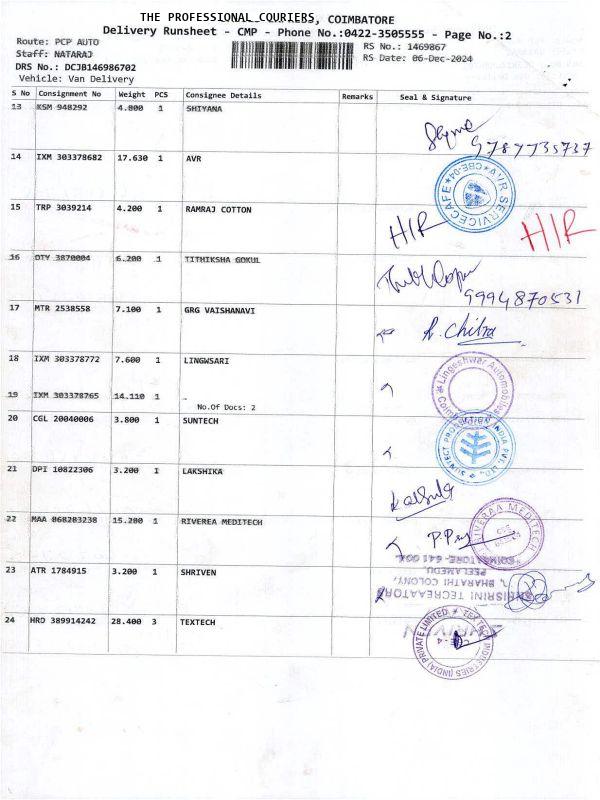 THE PROFESSIONAL COURIERS, COIMBATORE
Delivery Runsheet - CMP - Phone No.:0422-3505555 - Page No.:2
Route: PCP AUTO
Staff: NATARAJ
DRS No.: DCJB146986702
Vehicle: Van Delivery
RS No.: 1469867
RS Date: 06-Dec-2024
S No Consignment No Weight PCS Consignee Details Remarks Seal & Signature
13 KSM 948292 4.800 1 SHIYANA
9787735737
14 IXM 303378682 17.630 1 AVR
AVR SERVICECAFE *CBE-04*
15 TRP 3039214 4.200 1 RAMRAJ COTTON
H/R H/R
16 OTY 3870004 6.200 1 TITHIKSHA GOKUL
9994870531
17 MTR 2538558 7.100 1 GRG VAISHANAVI
R. Chitra
18 IXM 303378772 7.600 1 LINGWSARI
Lingeshwar Automobiles
19 IXM 303378765 14.110 1 -
No.Of Docs: 2
20 CGL 20040006 3.800 1 SUNTECH
21 DPI 10822306 3.200 1 LAKSHIKA
22 MAA 068203238 15.200 1 RIVEREA MEDITECH
RIVERAA MEDITECH
23 ATR 1784915 3.200 1 SHRIVEN
SHRISRINI TECREAATORS
BHARATHI COLONY,
PEELAMEDU,
COIMBATORE-641 004.
24 HRO 389914242 28.400 3 TEXTECH
TEXTECH INDUSTRIES (INDIA) PRIVATE LIMITED